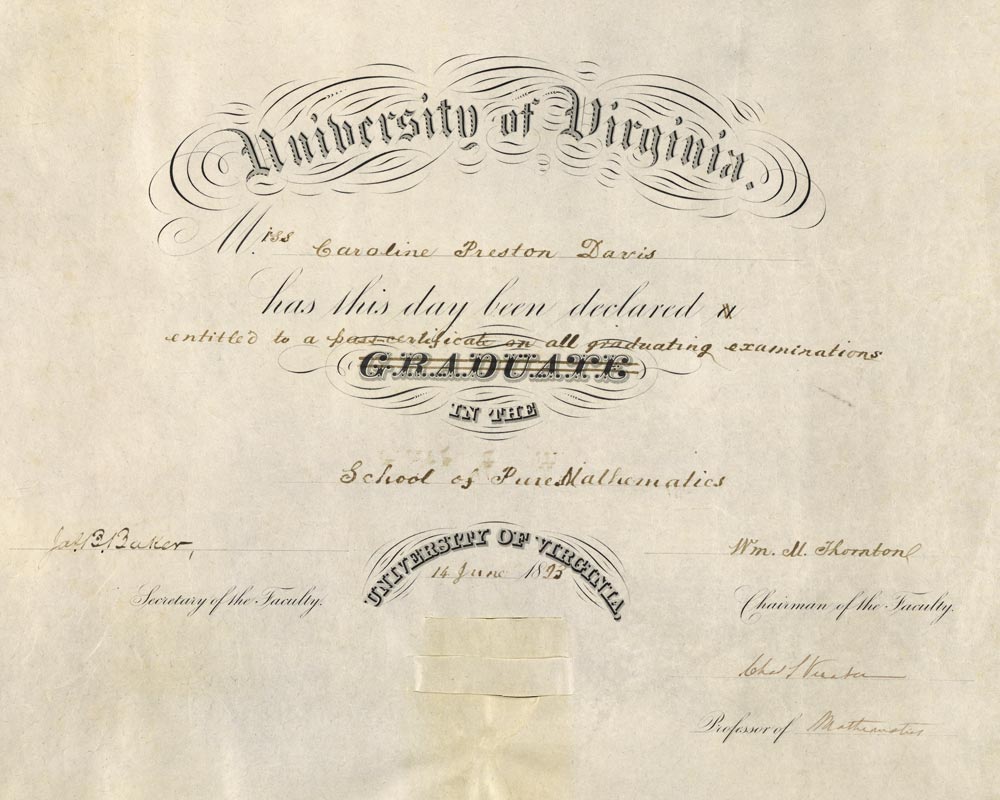 University of Virginia.
Miss Caroline Preston Davis
has this day been declared a
entitled to a pass certificate on all graduating examinations
GRADUATE
IN THE
School of Pure Mathematics
Jas. B. Baker,
Wm. M. Thornton
UNIVERSITY OF VIRGINIA,
14 June 1893
Secretary of the Faculty.
Chairman of the Faculty.
Professor of Mathematics